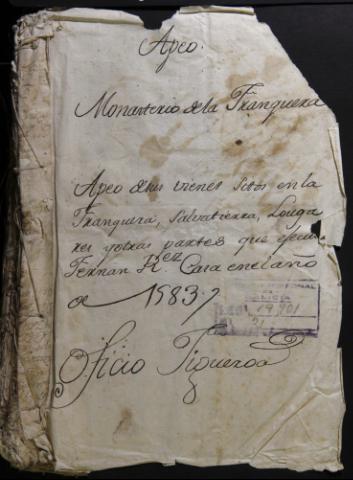 Apeo.
Monasterio de la Franquera
Apeo de sus vienes sitos en la
Franquera, Salvatierra, Louga
res yotras partes que
Fernan Rez. Cara enelaño
de 1583.
GALICIA
Oficio Figueroa